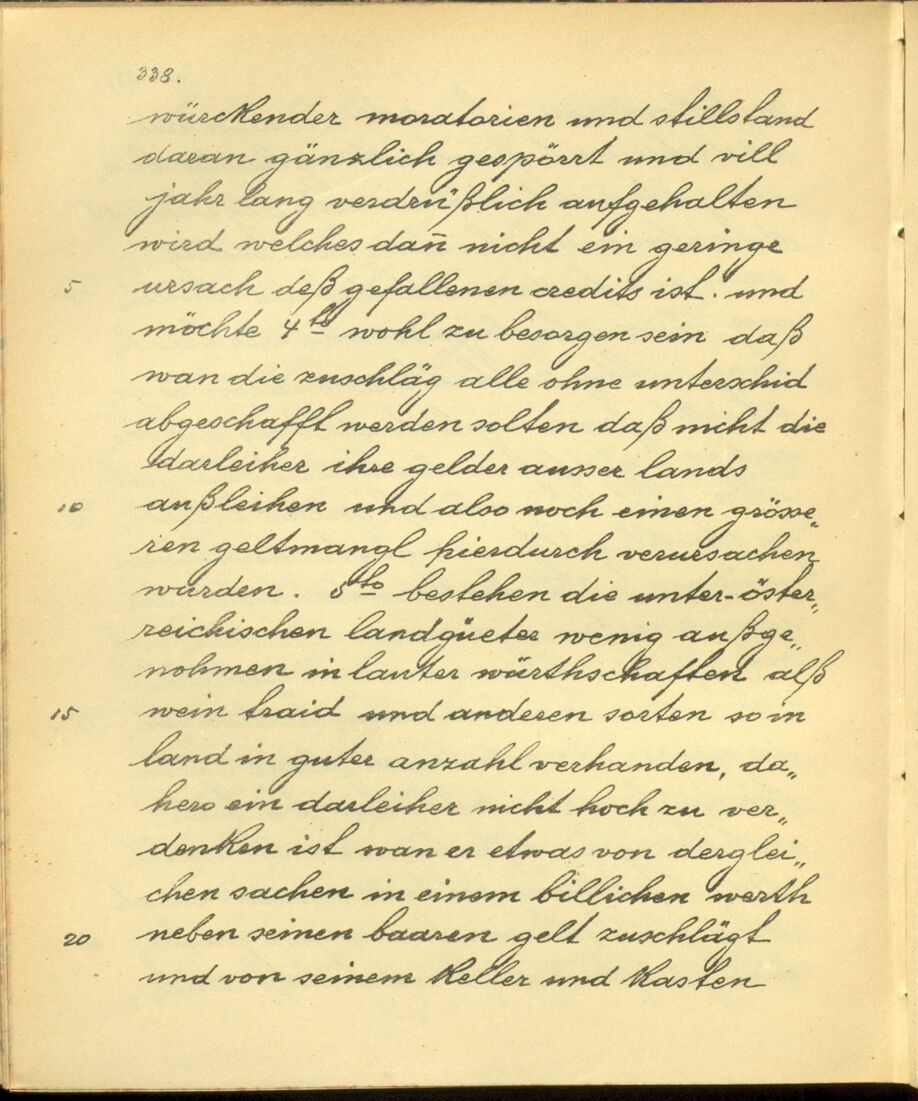 338.
würckender moratorien und stillstand
daran gänzlich gespörrt und vill
jahr lang verdrüßlich aufgehalten
wird welches dan̄ nicht ein geringe
5 ursach deß gefallenen credits ist. und
möchte 4to wohl zu besorgen sein daß
wan die zuschläg alle ohne unterschid
abgeschafft werden solten daß nicht die
darleiher ihre gelder ausser lands
10 außleihen und also noch einen grösse„
ren geltmangl hierdurch verursachen
wurden. 5to bestehen die unter-öster„
reichischen landgüeter wenig außge„
nohmen in lauter würthschaften alß
15 wein traid und anderen sorten so in
land in guter anzahl verhanden, da„
hero ein darleiher nicht hoch zu ver„
denken ist wan er etwas von derglei„
chen sachen in einem billichen werth
20 neben seinen baaren gelt zuschlägt
und von seinem keller und kasten